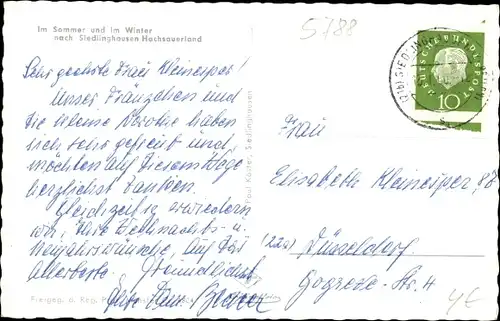 Im Sommer und im Winter
nach Siedlinghausen Hochsauerland
5788
Sehr geehrte Frau Kleinesper!
Unser Fränzchen und
die kleine Dorothe haben
sich sehr gefreut und
möchten auf diesem Wege
herzlichst danken.
Gleichzeitig erwiedern
wir, Ihre Weihnachts- u-
Neujahrswünsche, auf das
Allerbeste. Freundlichst
Ihre Fam.
Freigeg. d. Reg.
Paul Köster, Siedlinghausen
DEUTSCHE BUNDESPOST
10
Frau
Elisabeth Kleinesper
(22a) Düsseldorf.
Str. 4
4€